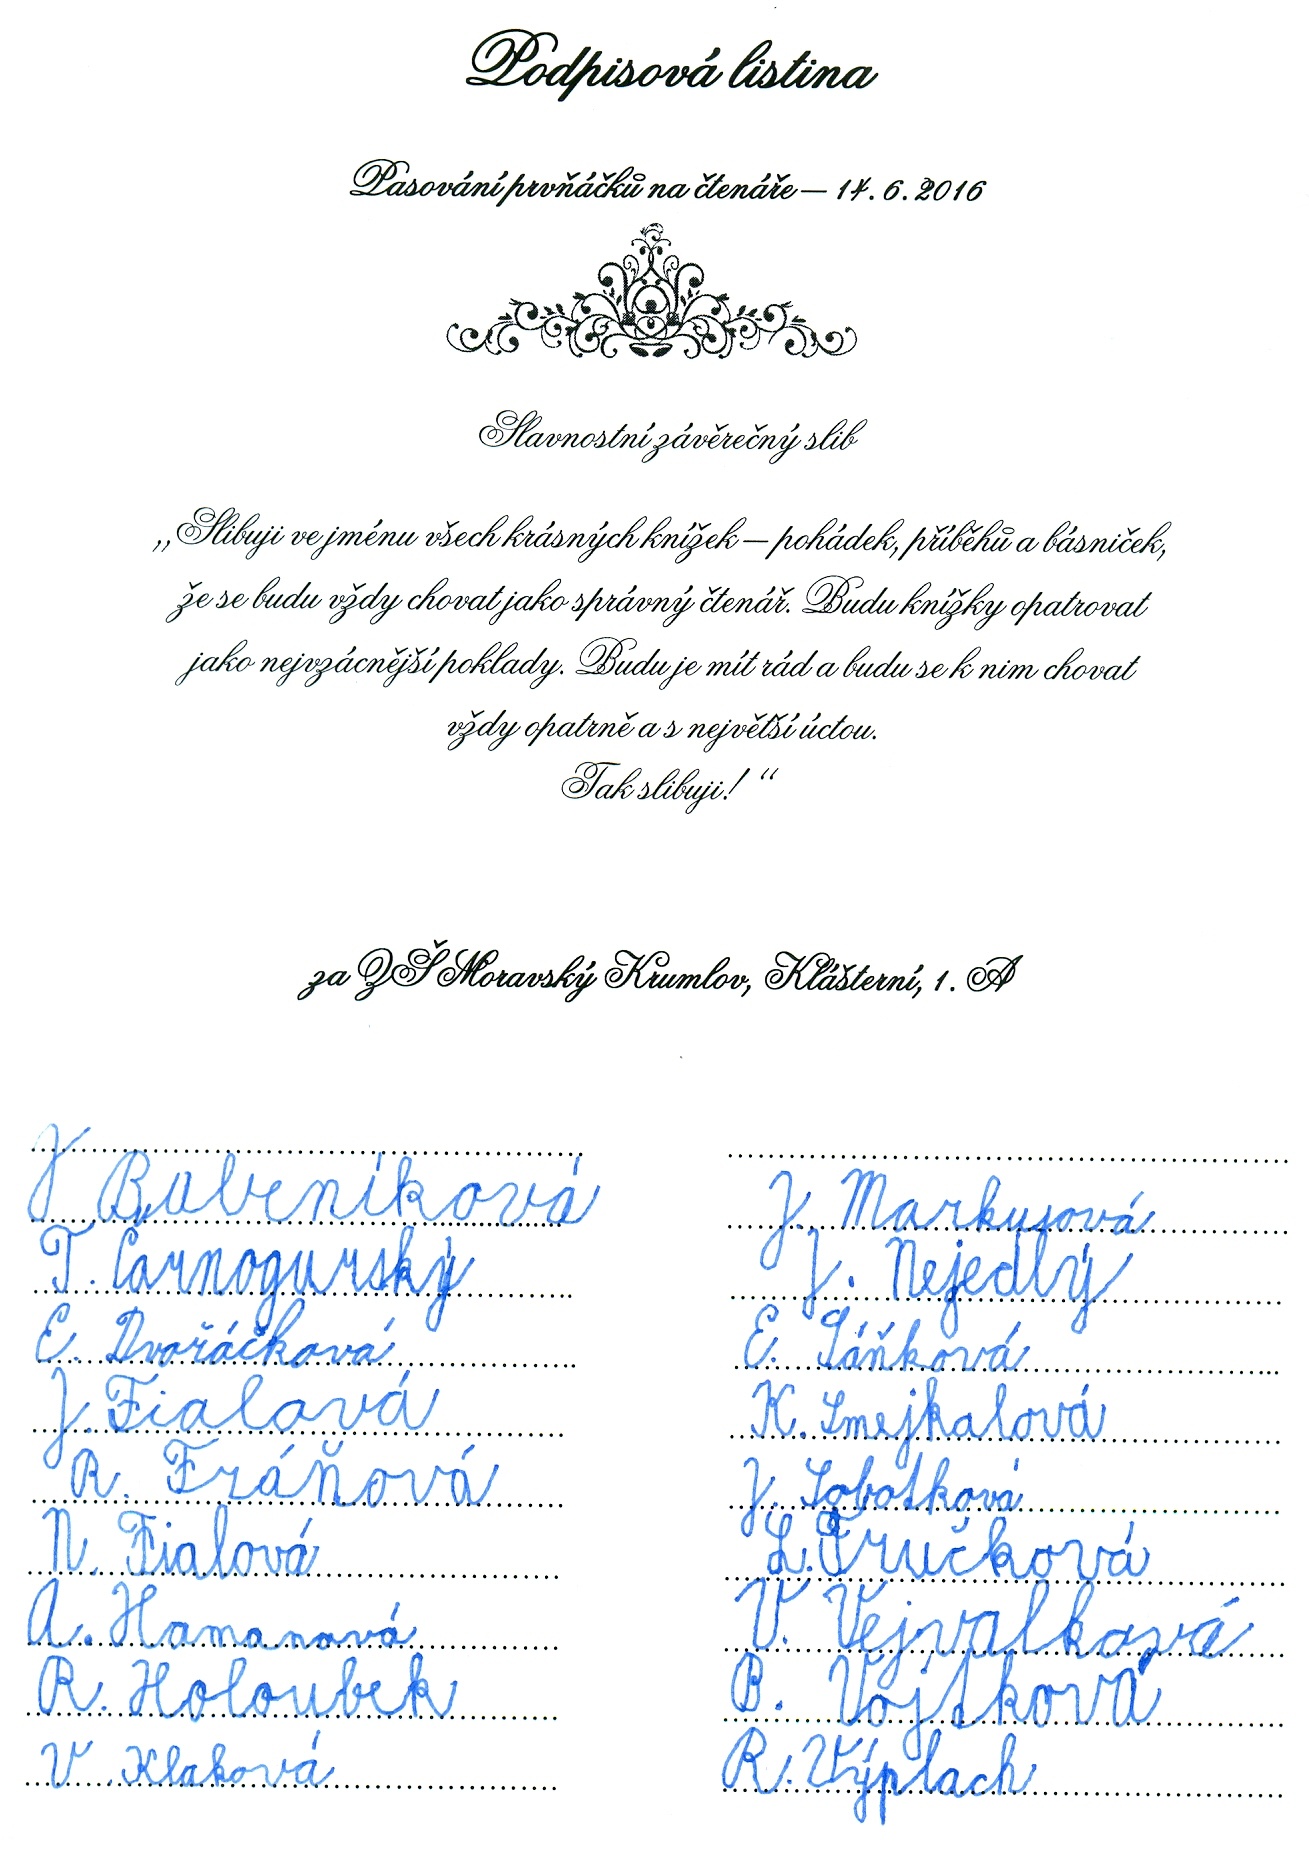 Podpisová listina
Pasování prvňáčků na čtenáře – 14. 6. 2016
Slavnostní závěrečný slib
„Slibuji ve jménu všech krásných knížek – pohádek, příběhů a básniček,
že se budu vždy chovat jako správný čtenář. Budu knížky opatrovat
jako nejvzácnější poklady. Budu je mít rád a budu se k nim chovat
vždy opatrně a s největší úctou.
Tak slibuji! “
za ZŠ Moravský Krumlov, Klášterní, 1. A
J Bubeníková
T. Čarnogurský
E. Dvořáčková
J. Fialová
R. Fráňová
N. Fialová
A. Hamanová
R. Holoubek
V. Klaková
J. Markusová
J. Nejedlý
E. Sáňková
K. Smejkalová
J. Sobotková
L. Tručková
V. Vejvalková
B. Vojtková
R. Výplach